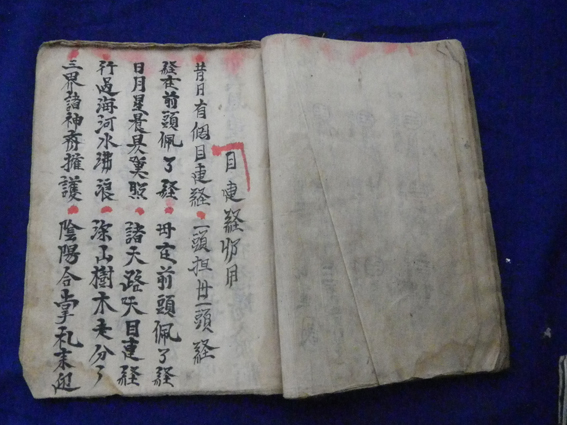 目連経
昔日有個目連経 一頭担母一頭経
経在前頭佩了経 母在前頭佩了経
日月星辰 照 諸天路 目連経
行過海河水沸浪 深山樹木走分了
三界諸神齊擁護 陰陽合掌礼来迎